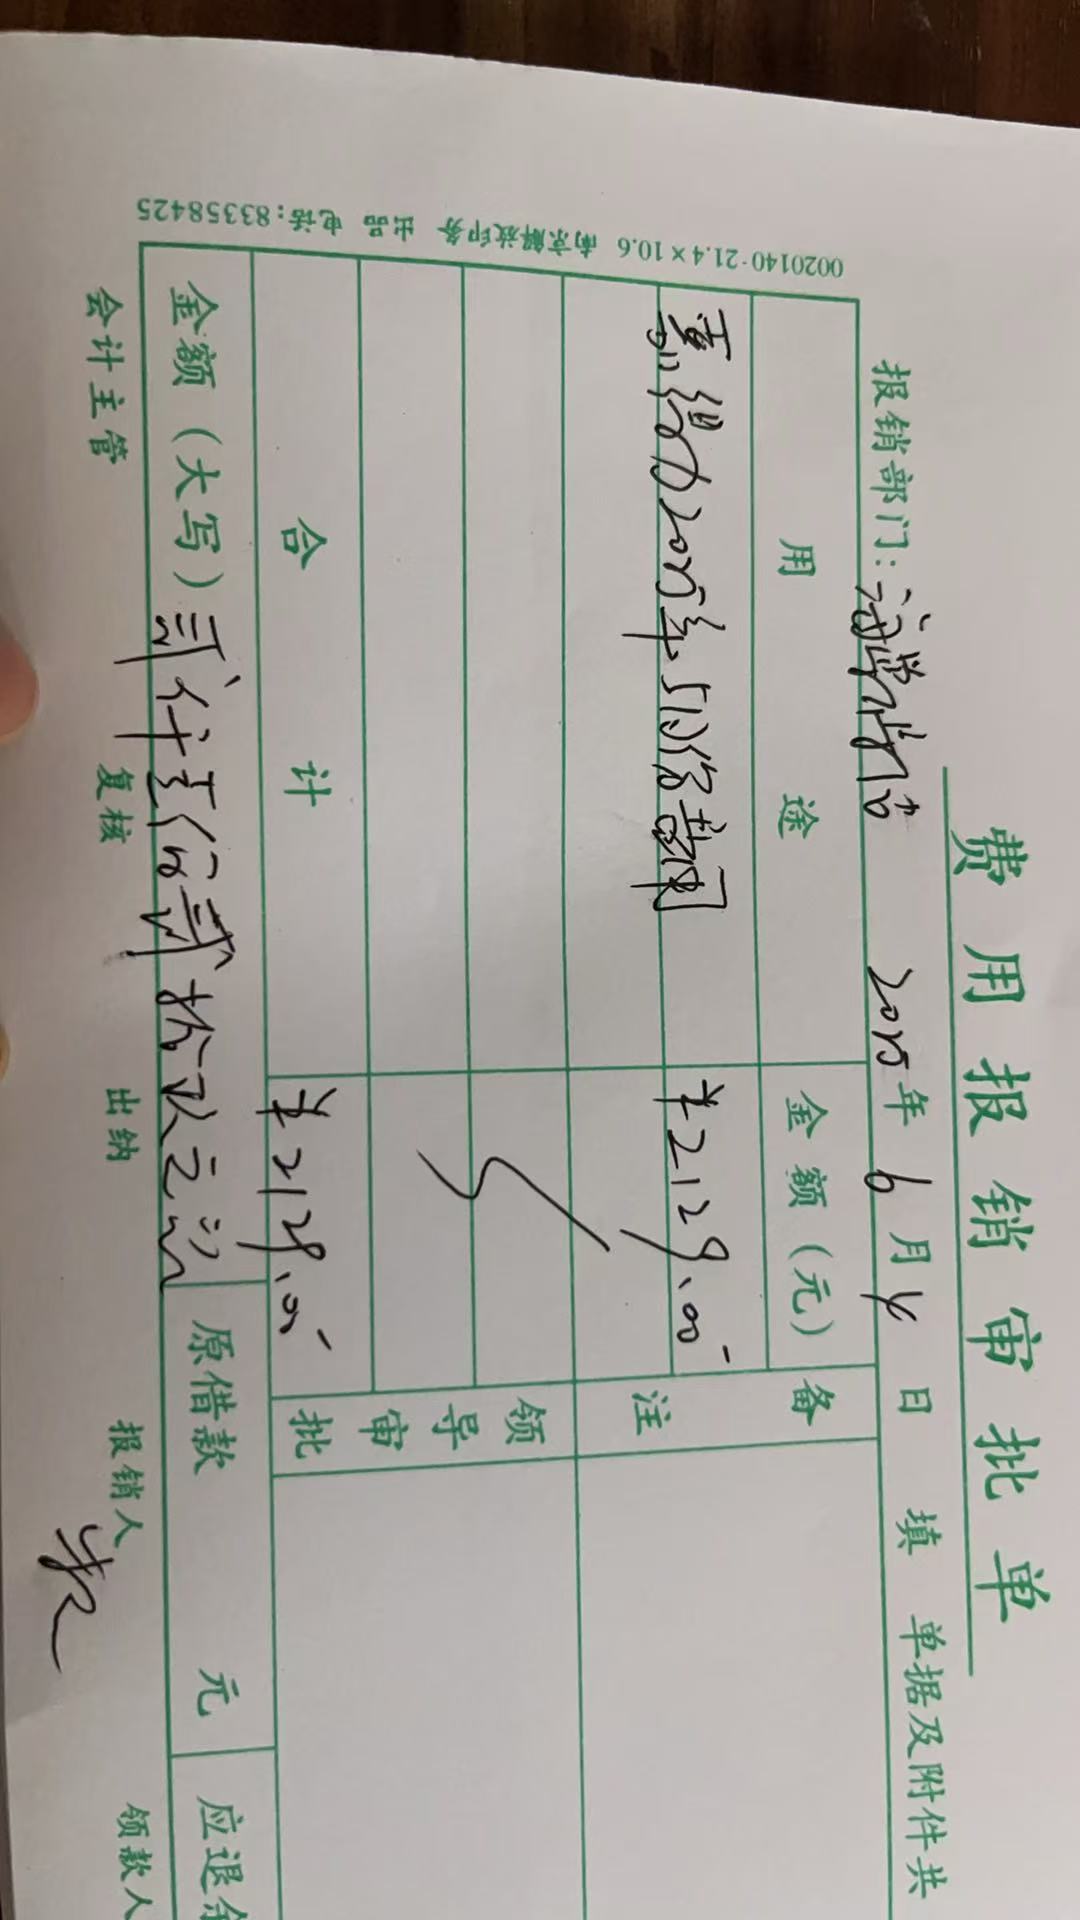 费用报销审批单
报销部门: 2025年6月4日 填 单据及附件共
用途 金额(元) 备注
2025年5月份 ¥2129.00
领导审批
合计 ¥2129.00
金额(大写) 贰仟壹佰贰拾玖元 原借款 元 应退余
会计主管 复核 出纳 报销人 领款人
0020140-21.4×10.6 南京解放印务 出品 电话:83358425